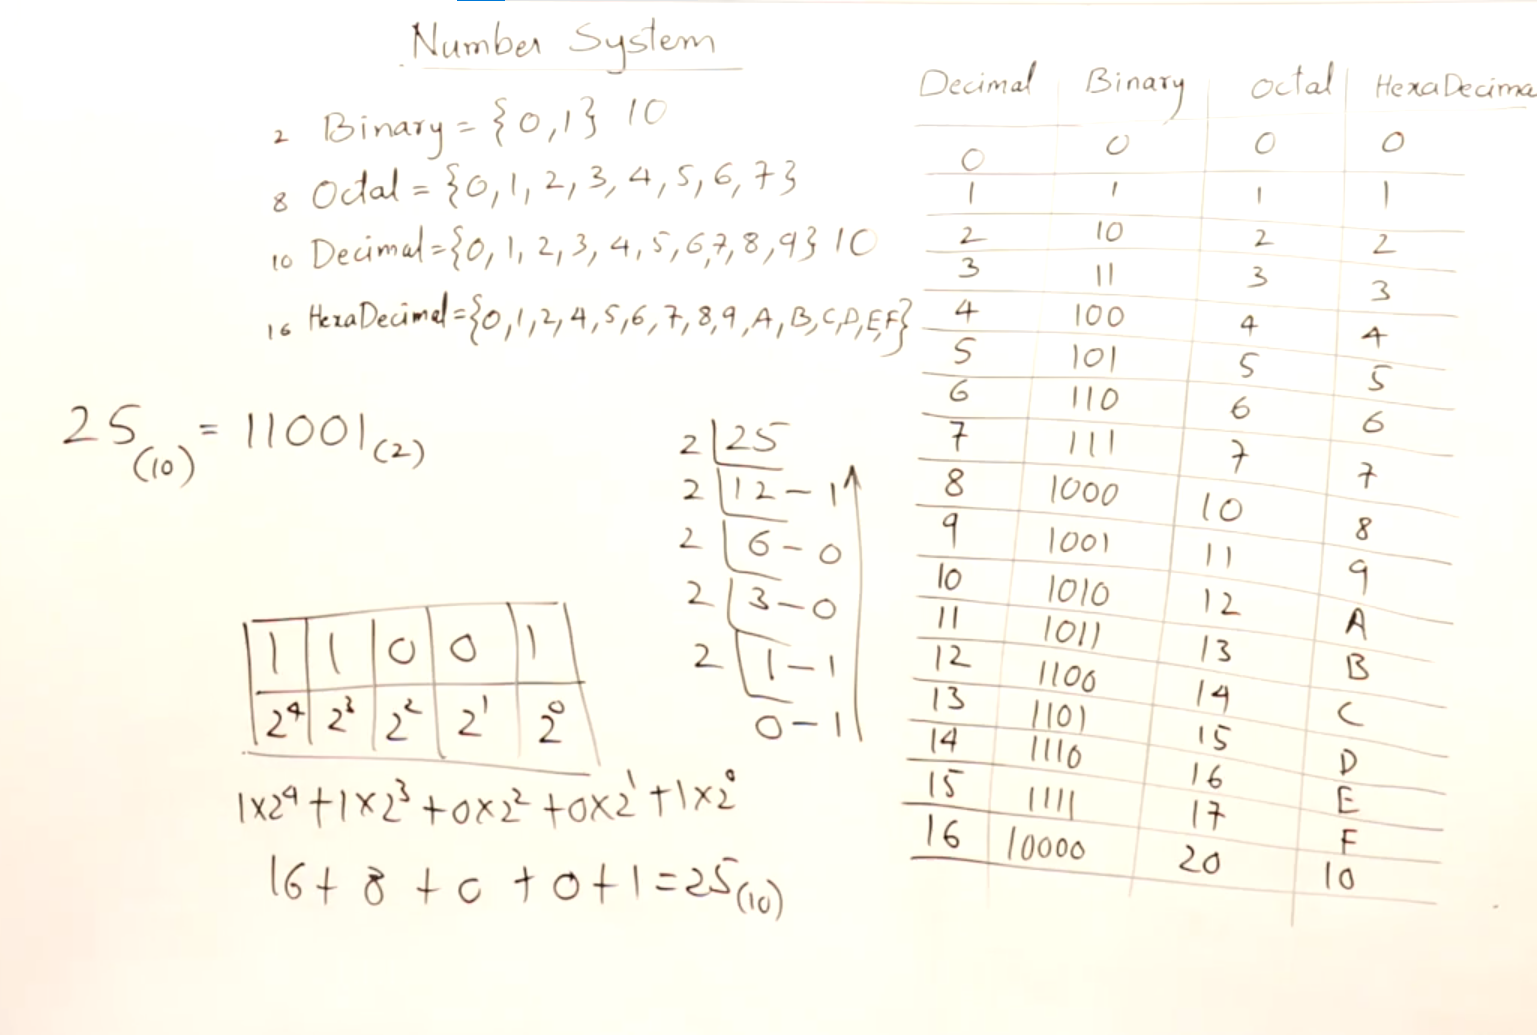 Number System
2 Binary = {0,1} 10
8 Octal = {0,1,2,3,4,5,6,7}
10 Decimal = {0,1,2,3,4,5,6,7,8,9} 10
16 HexaDecimal = {0,1,2,4,5,6,7,8,9,A,B,C,D,E,F}
25(10) = 11001(2)
2 25
2 12 - 1
2 6 - 0
2 3 - 0
2 1 - 1
0 - 1
1 1 0 0 1
2⁴ 2³ 2² 2¹ 2⁰
1x2⁴ + 1x2³ + 0x2² + 0x2¹ + 1x2⁰
16 + 8 + 0 + 0 + 1 = 25(10)
Decimal Binary Octal HexaDecima
0 0 0 0
1 1 1 1
2 10 2 2
3 11 3 3
4 100 4 4
5 101 5 5
6 110 6 6
7 111 7 7
8 1000 10 8
9 1001 11 9
10 1010 12 A
11 1011 13 B
12 1100 14 C
13 1101 15 D
14 1110 16 E
15 1111 17 F
16 10000 20 10